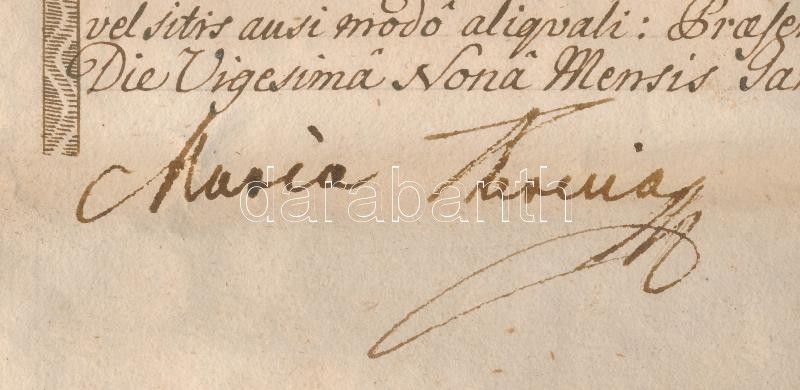 vel sitis ausi modô aliqvali: Præsen
Die Vigesimâ Nonâ Mensis Jan
Maria Theresia
darabanth